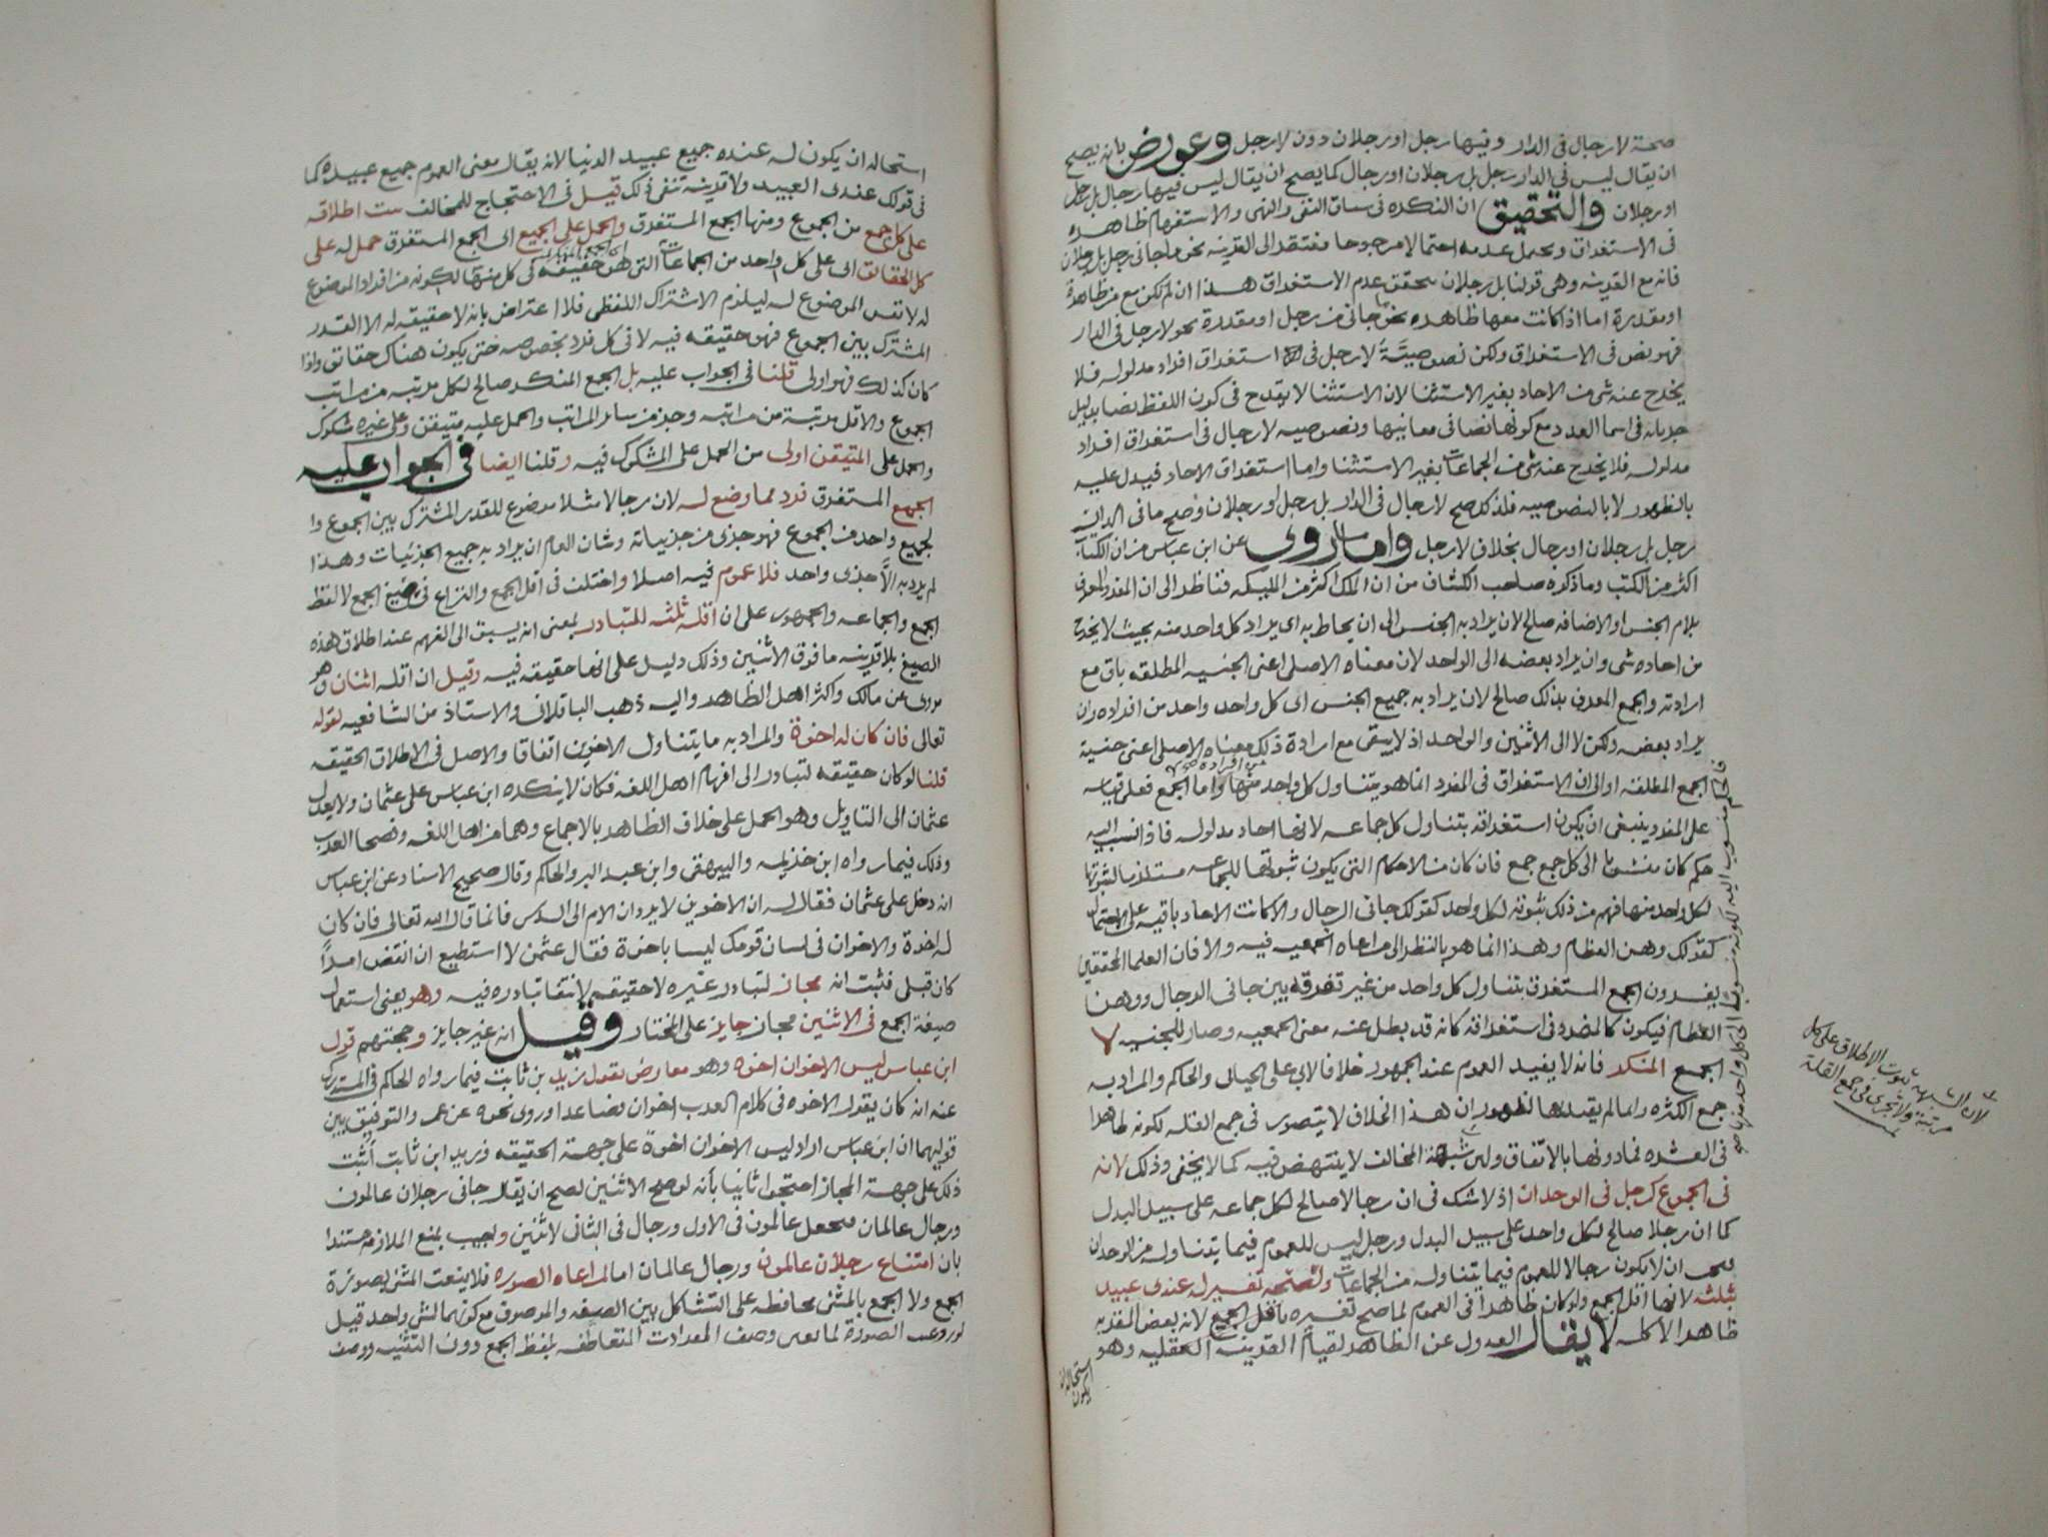 صحة لا رجال فى الدار وفيها رجل او رجلان دون لا رجل وعورض بانه يصح
ان يقال ليس فى الدار رجل بل رجلان او رجال كما يصح ان يقال ليس فيها رجال بل رجل
او رجلان والتحقيق ان النكره فى سياق النفى والنهى والاستفهام ظاهره
فى الاستغراق ويحتمل عدمه احتمالا مرجوحا مفتقرا الى القرينه نحو ما جانى رجل بل رجلان
فانه مع القرينه وهى قولنا بل رجلان يتحقق عدم الاستغراق هذا ان لم تكن مع من ظاهرة
او مقدرة اما اذا كانت معها ظاهره نحو ما جانى من رجل او مقدرة نحو لا رجل فى الدار
فهو نص فى الاستغراق ولكن نصوصيته لا رجل فى استغراق افراد مدلوله فلا
يخرج عنه شى من الاحاد بغير الاستثنا لان الاستثنا لا يقدح فى كون اللفظ نصا بدليل
جريانه فى اسما العدد مع كونها نصا فى معانيها ونصوصيه لا رجال فى استغراق افراد
مدلوله فلا يخرج عنه شى من الجماعات بغير الاستثنا واما استغراق الاحاد فيدل عليه
بالظهور لا بالنصوصيه فلذلك صح لا رجال فى الدار بل رجل او رجلان وصح ما فى الدار
رجل بل رجلان او رجال بخلاف لا رجل واما ما روى عن ابن عباس من ان الكتاب
اكثر من الكتب وما ذكره صاحب الكشاف من ان الملك اكثر من المليكه فناظر الى ان المفرد المعرف
بلام الجنس او الاضافه صالح لان يراد به الجنس الى ان يحاط به اى يراد كل واحد منه بحيث لا يخرج
من احاده شى وان يراد بعضه الى الواحد لان معناه الاصلى اعنى الجنسيه المطلقه باق مع
ارادته والجمع المعرف بذلك صالح لان يراد به جميع الجنس الى كل واحد واحد من افراده وان
يراد بعضه ولكن لا الى الاثنين والواحد اذ لا يبقى مع ارادة ذلك معناه الاصلى اعنى جنسية
الجمع المطلقه او الى ان الاستغراق فى المفرد انما هو يتناول كل واحد منها واما الجمع فعلى قياسه
على المفرد ينبغى ان يكون استغراقه بتناول كل جماعه لانها احاد مدلوله فاذا نسب اليه
حكم كان منسوبا الى كل جمع جمع فان كان من الاحكام التى يكون ثبوتها للجماعه مستلزما لثبوتها
لكل واحد منها فهم من ذلك ثبوته لكل واحد كقولك جانى الرجال والا كانت الاحاد باقيه على الاحتمال
كقولك وهن العظام وهذا انما هو بالنظر الى مراعاه الجمعيه فيه والا فان العلما المحققين
يفسرون الجمع المستغرق بتناول كل واحد من غير تفرقه بين جانى الرجال ووهن
العظام فيكون كالمفرد فى استغراقه كانه قد بطل عنه معنى الجمعيه وصار للجنسيه لا
الجمع المنكر فانه لا يفيد العموم عند الجمهور خلافا لابى على الجبائى والحاكم والمراد به
جمع الكثره وانما لم يقيد بها لظهور ان هذا الخلاف لا يتصور فى جمع القله لكونه ظاهرا
فى العشره فما دونها بالاتفاق ولان شبهة المخالف لا ينتهض فيه كما لا يخفى وذلك لانه
فى الجموع كرجل فى الوحدان اذ لا شك فى ان رجالا صالح لكل جماعه على سبيل البدل
كما ان رجلا صالح لكل واحد على سبيل البدل ورجل ليس للعموم فيما يتناوله من الوحدان
فيجب ان لا يكون رجالا للعموم فيما يتناوله من الجماعات ولصحه تفسير له عندى عبيد
بثلثه لانها اقل الجمع ولو كان ظاهرا فى العموم لما صح تفسيره باقل الجمع لانه بعض المقربه
ظاهرا لا كله لا يقال العدول عن الظاهر لقيام القرينه العقليه وهو
استحاله ان يكون
لان الشبهه ثبوت الاطلاق على كل
مرتبة ولا تجرى فى جمع القلة
استحاله ان يكون له عنده جميع عبيد الدنيا لانه يقال معنى العموم جميع عبيده كما
فى قولك عندى العبيد ولا قرينه تنفى ذلك قيل فى الاحتجاج للمخالف ثبت اطلاقه
على كل جمع من الجموع ومنها الجمع المستغرق والحمل على الجميع اى الجمع المستغرق حمل له على
كل الحقائق اى على كل واحد من الجماعات التى هو حقيقه فى كل منها لكونه من افراد الموضوع
له لا نفس الموضوع له ليلزم الاشتراك اللفظى فلا اعتراض بانه لا حقيقه له الا القدر
المشترك بين الجموع فهو حقيقه فيه لا فى كل فرد بخصوصه حتى يكون هناك حقائق واذا
كان كذلك فهو اولى قلنا فى الجواب عليه بل الجمع المنكر صالح لكل مرتبه من مراتب
الجموع والاقل مرتبة من مراتبه وجزء من سائر المراتب والحمل عليه متيقن وعلى غيره مشكوك
والحمل على المتيقن اولى من الحمل على المشكوك فيه وقلنا ايضا فى الجواب عليه
الجمع المستغرق فرد مما وضع له لان رجالا مثلا موضوع للقدر المشترك بين الجموع وا
لجميع واحد من الجموع فهو جزى من جزئياته وشان العام ان يراد به جميع الجزئيات وهذا
لم يرد به الا جزى واحد فلا عموم فيه اصلا واختلف فى اقل الجمع والنزاع فى صيغ الجمع لا لفظ
الجمع والجماعه والجمهور على ان اقله ثلثه للتبادر بمعنى انه يسبق الى الفهم عند اطلاق هذه
الصيغ بلا قرينه ما فوق الاثنين وذلك دليل على انها حقيقه فيه وقيل ان اقله اثنان وهو
مروى عن مالك واكثر اهل الظاهر واليه ذهب الباقلانى والاستاذ من الشافعيه لقوله
تعالى فان كان له اخوة والمراد به ما يتناول الاخوين اتفاقا والاصل فى الاطلاق الحقيقه
قلنا لو كان حقيقه لتبادر الى افهام اهل اللغه فكان لا ينكره ابن عباس على عثمان ولا يعدل
عثمان الى التاويل وهو الحمل على خلاف الظاهر بالاجماع وهما من اهل اللغه وفصحا العرب
وذلك فيما رواه ابن خزيمه والبيهقى وابن عبد البر والحاكم وقال صحيح الاسناد عن ابن عباس
انه دخل على عثمان فقال له ان الاخوين لا يردان الام الى السدس فانما قال الله تعالى فان كان
له اخوة والاخوان فى لسان قومك ليسا باخوة فقال عثمن لا استطيع ان انقض امرا
كان قبلى فثبت انه مجاز لتبادر غيره لا حقيقه لانتفا تبادره فيه وهو يعنى استعمال
صيغة الجمع فى الاثنين مجاز جايز على المختار وقيل انه غير جايز وحجتهم قول
ابن عباس ليس الاخوان اخوه وهو معارض بقول زيد بن ثابت فيما رواه الحاكم فى المستدرك
عنه انه كان يقول الاخوه فى كلام العرب اخوان فصاعدا وروى نحوه عن عمر والتوفيق بين
قوليهما ان ابن عباس اراد ليس الاخوان اخوة على جهة الحقيقه وزيد ابن ثابت اثبت
ذلك على جهة المجاز احتجوا ثانيا بانه لو صح الاثنين لصح ان يقال جانى رجلان عالمون
ورجال عالمان فيجعل عالمون فى الاول ورجال فى الثانى لاثنين ويجيب بمنع الملازمه مستندا
بان امتناع رجلان عالمون ورجال عالمان انما لمراعاه الصوره فلا ينعت المثنى بصورة
الجمع ولا الجمع بالمثنى محافظه على التشاكل بين الصفه والموصوف مع كونهما لشى واحد قيل
لو روعيت الصورة لما وصف المفردات المتعاطفه بلفظ الجمع دون التثنيه ووصف